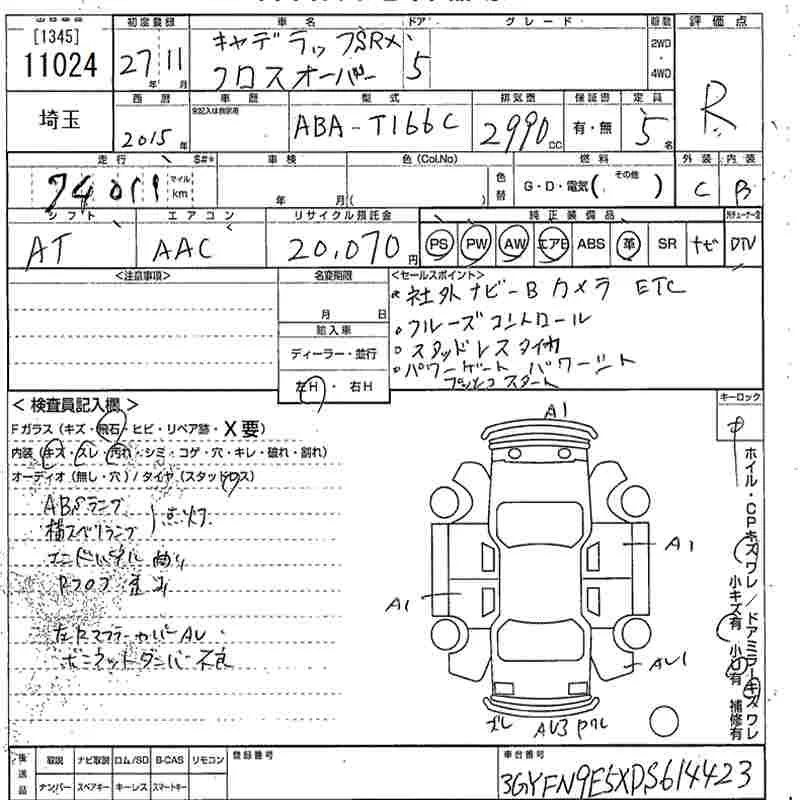 [1345]
11024
埼玉
初度登録
27 11
年 月
車名
キャデラックSRX
クロスオーバー
ドア
5
グレード
駆動
2WD
・
4WD
評価点
R
西暦
2015年
車歴
型式
ABA-T166C
排気量
2990 CC
保証書
有・無
定員
5名
走行
S#*
74011 マイル km
車検
年 月(
色(Col.No)
)
色替
燃料
G・D・電気( その他 )
外装
C
内装
B
シフト
AT
エアコン
AAC
リサイクル預託金
20,070円
純正装備品
PS PW AW エアB ABS 革 SR ナビ DTV
<注意事項>
名変期限
月 日
輸入車
ディーラー・並行
左H・右H
<セールスポイント>
社外ナビ-Bカメラ ETC
クルーズコントロール
スタッドレスタイヤ
パワーゲート パワーシート
プッシュスタート
キーロック
<検査員記入欄>
Fガラス(キズ・飛石・ヒビ・リペア跡・X要)
内装(キズ・スレ・汚れ・シミ・コゲ・穴・キレ・破れ・割れ)
オーディオ(無し・穴)/タイヤ(スタッドレス)
ABSランプ
横スベリランプ 点灯
エンドパネル曲り
左Rマフラーカバー AU
ボンネットダンパー不良
A1
A1
A1
AU1
ズレ
AU3 ワレ
ホイル・CPキズワレ/ドアミラーキズワレ
小キズ有 小U有 補修有
後送品
取説 ナビ取説 ロム/SD B-CAS リモコン
ナンバー スペアキー キーレス スマートキー
登録番号
車台番号
3GYFN9E5XDS614423